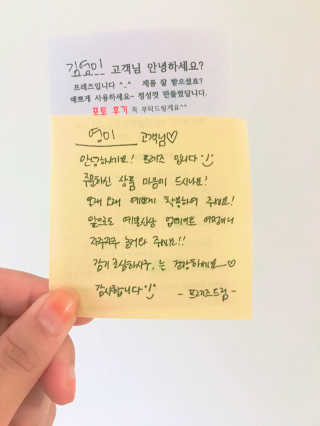 김영미 고객님 안녕하세요?
프레즈입니다 ^_^ 제품 잘 받으셨죠?
예쁘게 사용하세요~ 정성껏 만들었답니다.
포토 후기 꼭 부탁드릴게요^^
영미 고객님♡
안녕하세요! 프레즈 입니다 :)
주문하신 상품 마음에 드시나요!
오래 오래 예쁘게 착용하여 주세요!
앞으로도 예쁜상상 업데이트 예정에서
자주자주 놀러와 주세요!!
감기 조심하시구, 는 건강하세요~♡
감사합니다 :)
- 프레즈드림 -